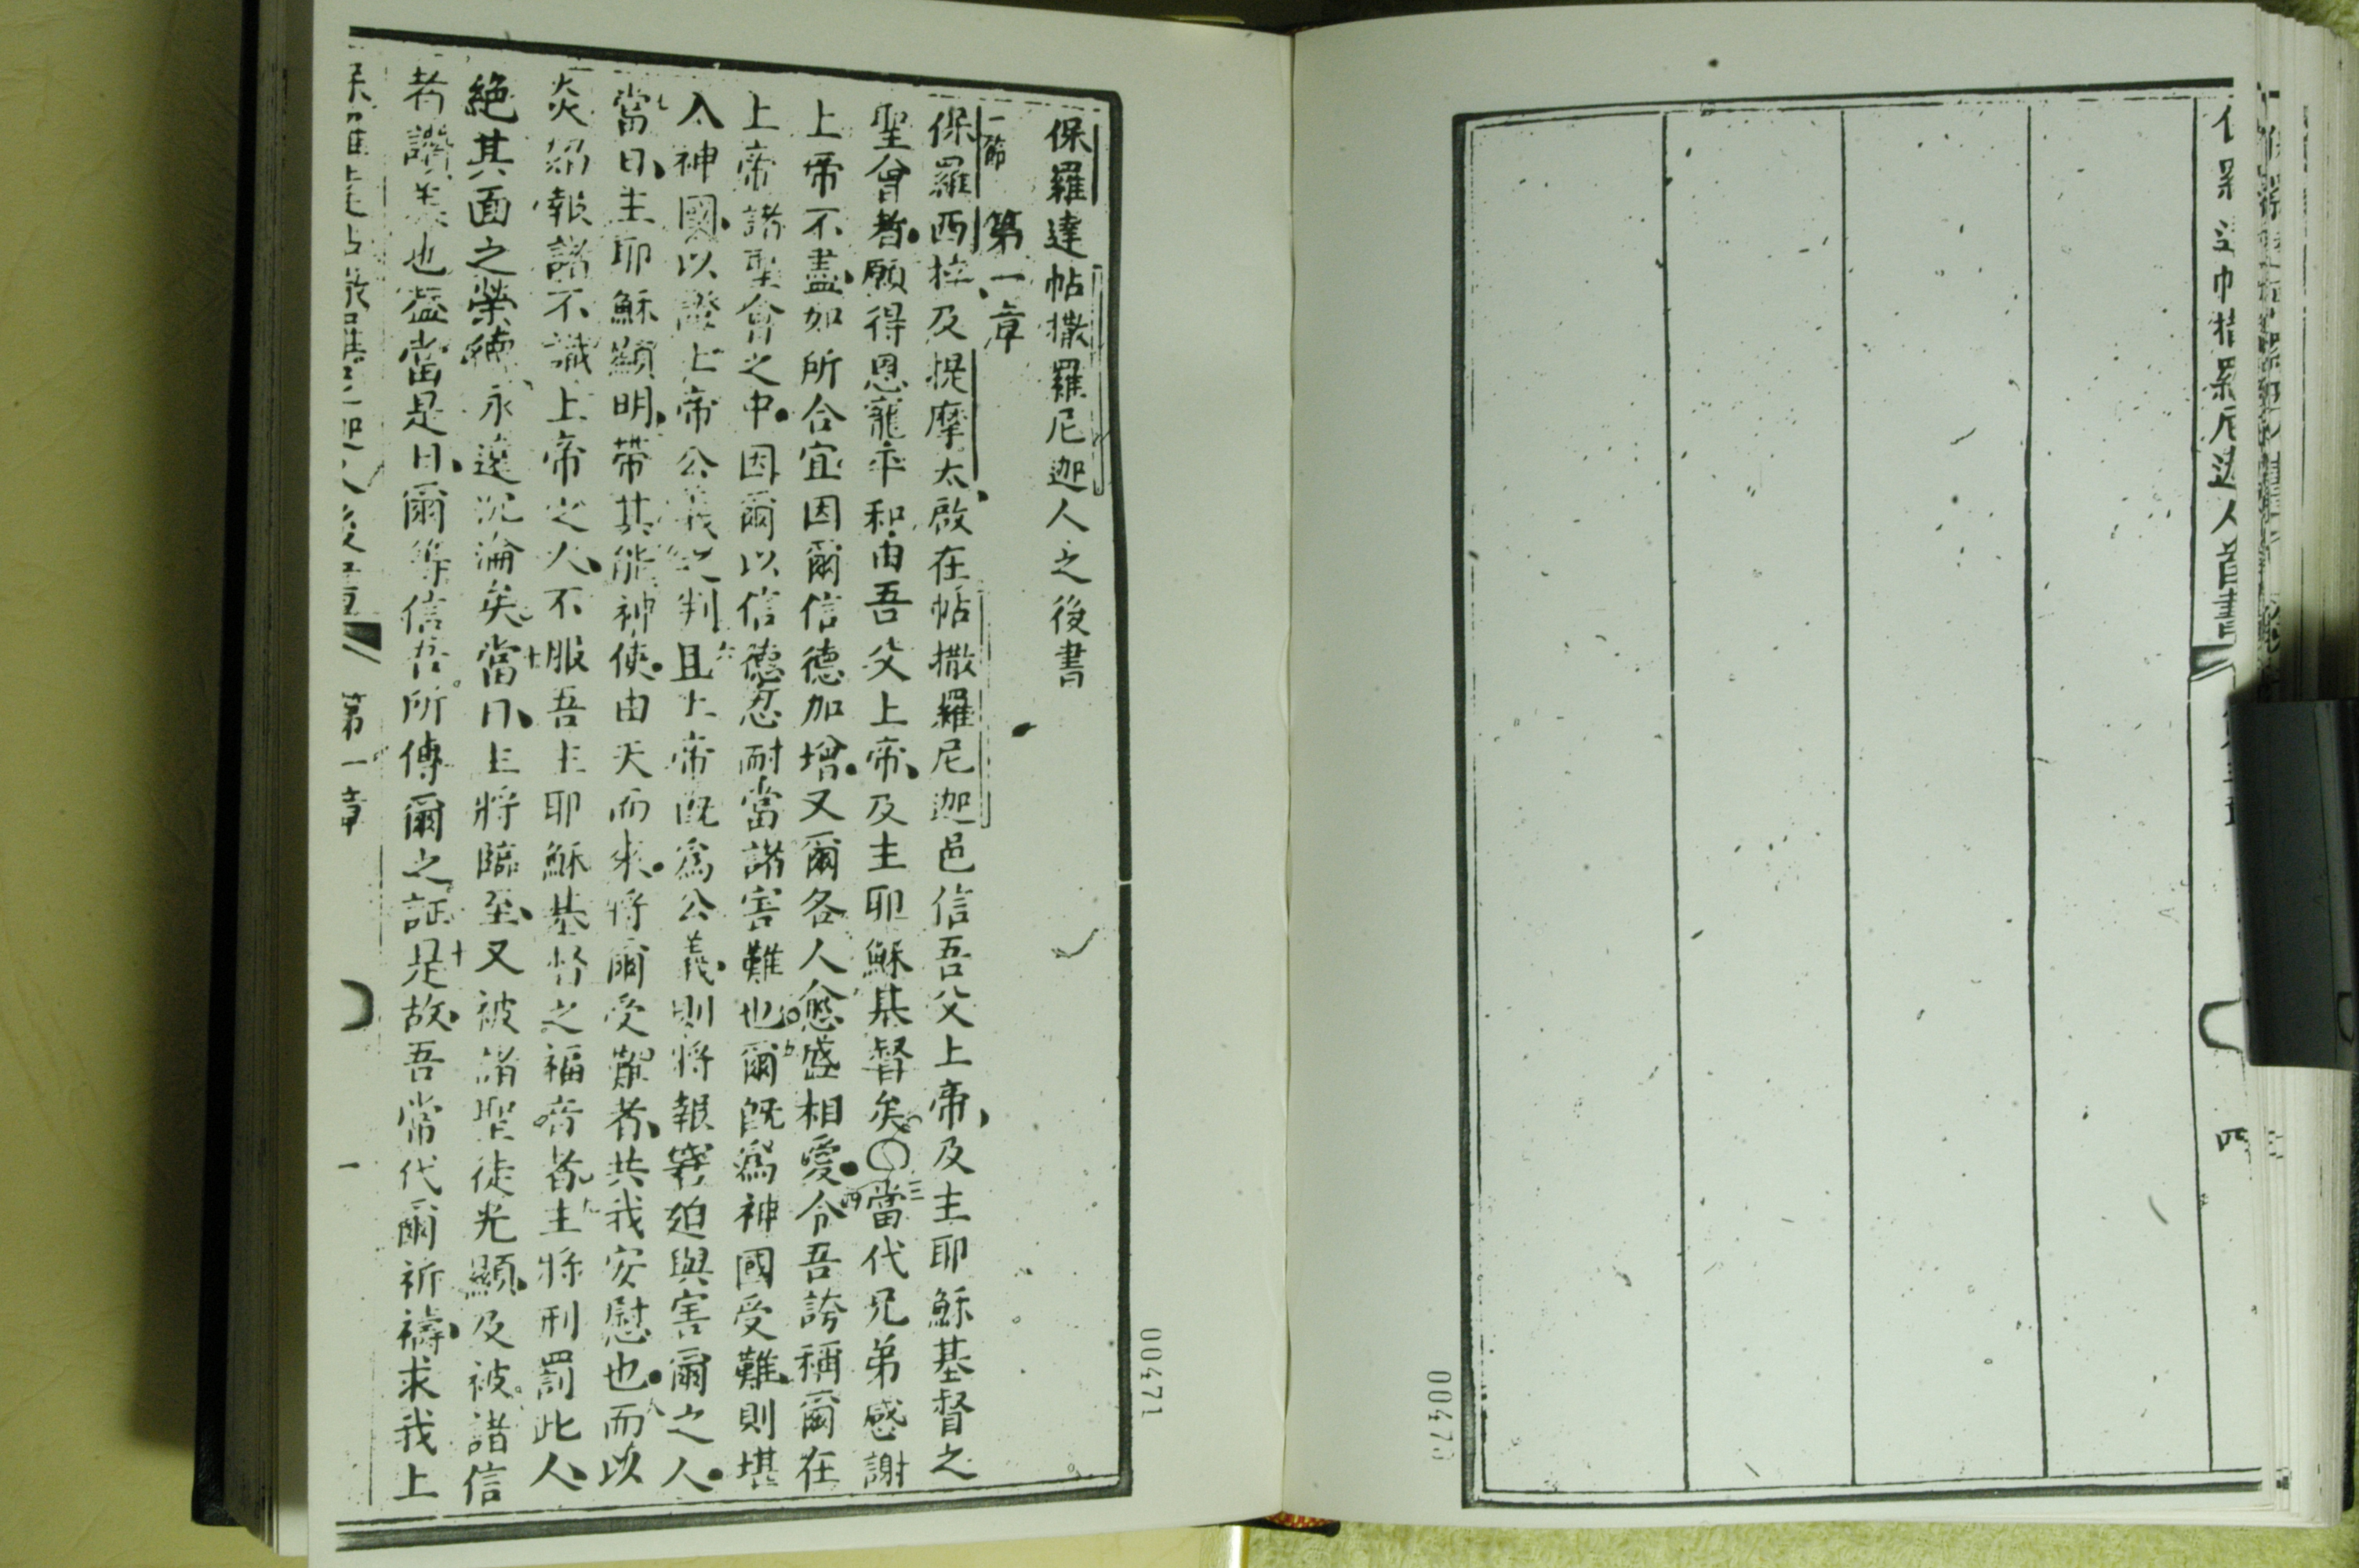 保羅達帖撒羅尼迦人之後書
一節 第一章
保羅西拴及提摩太啟在帖撒羅尼迦邑信吾父上帝及主耶穌基督之
聖會者願得恩寵平和由吾父上帝及主耶穌基督矣〇三當代兄弟感謝
上帝不盡如所合宜因爾信德加增又爾各人愈盛相愛四令吾誇稱爾在
上帝諸聖會之中因爾以信德忍耐當諸害難也爾既為神國受難則堪
入神國以證上帝公義之判且上帝既為公義則將報窘迫與害爾之人
當日主耶穌顯明帶其能神使由天而來將爾受難者共我安慰也而以
炎焰報諸不識上帝之人不服吾主耶穌基督之福音者主將刑罰此人
絕其面之榮德永遠沉淪矣當日主將臨至又被諸聖徒光顯及被諸信
者讚羙也蓋當是日爾等信吾所傳爾之証是故吾常代爾祈禱求我上
第一章
一
00471
人首書
四